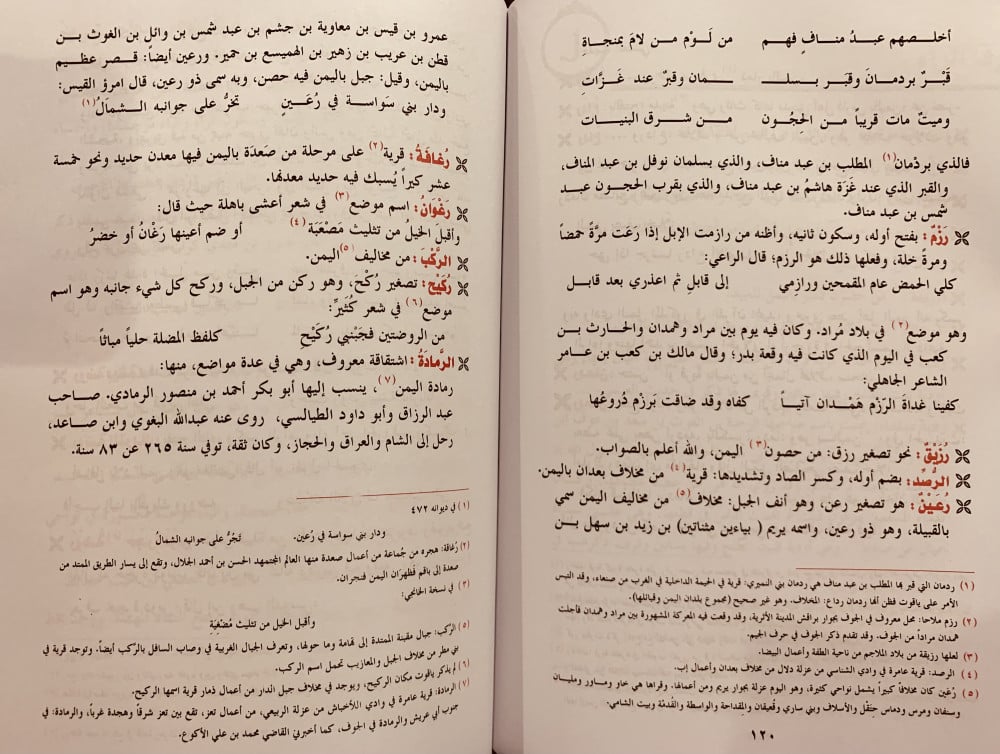 أخلصهم عبدُ منافٍ فهم من لَوْم من لامَ بمنجاةِ
قَبْرٌ بردمانَ وقبَر بسلـ ـمان وقبرٌ عند غَزَّاتِ
وميتٌ مات قريباً من الحِجُون من شرق البنيات
فالذي بردْمان(١) المطلب بن عبد مناف، والذي بسلمان نوفل بن عبد المناف،
والقبر الذي عند غَزَة هاشمُ بن عبد مناف، والذي بقرب الحجون عبد
شمس بن عبد مناف.
رَزْمٌ: بفتح أوله، وسكون ثانيه، وأظنه من رازمت الإبل إذا رَعَت مرّةً حمضاً
ومرةً خلة، وفعلها ذلك هو الرزم؛ قال الراعي:
كلي الحمض عام المقمحين ورازمي إلى قابلٍ ثم اعذري بعد قابل
وهو موضع(٢) في بلاد مُراد. وكان فيه يوم بين مراد وهمدان والحارث بن
كعب في اليوم الذي كانت فيه وقعة بدر؛ وقال مالك بن كعب بن عامر
الشاعر الجاهلي:
كفينا غداةَ الرّزْم هَمْدان آتيـاً كفاه وقد ضاقت بَرزْم دُروعُها
رُزَيْقٌ: نحو تصغير رزق: من حصون(٣) اليمن، والله أعلم بالصواب.
الرُصِّد: بضم أوله، وكسر الصاد وتشديدها: قرية(٤) من مخلاف بعدان باليمن.
رُعَيْنٌ: هو تصغير رعن، وهو أنف الجبل: مخلاف(٥) من مخاليف اليمن سمي
بالقبيلة، وهو ذو رعين، واسمه يريم ( بياءين مثناتين) بن زيد بن سهل بن
(١) ردمان التي قبر بها المطلب بن عبد مناف هي ردمان بني النميري: قرية في الحيمة الداخلية في الغرب من صنعاء، وقد التبس
الأمر على ياقوت فظن أنها ردمان رداع: المخلاف. وهو غير صحيح (مجموع بلدان اليمن وقبائلها).
(٢) رزم ملاحا: محل معروف في الجوف بجوار براقش المدينة الأثرية، وقد وقعت فيه المعركة المشهورة بين مراد وهمدان فأجلت
همدان مراداً من الجوف. وقد تقدم ذكر الجوف في حرف الجيم.
(٣) لعلها رزيقة من بلاد الملاجم من ناحية الطفة وأعمال البيضا.
(٤) الرصد: قرية عامرة في وادي الشناسي من عزلة دلال من مخلاف بعدان وأعمال إب.
(٥) رُعَين كان مخلافاً كبيراً يشمل نواحي كثيرة، وهو اليوم عزلة بجوار يريم ومن أعمالها. وقراها هي خاو ومساور ومليان
وسنفان ومرس ودماس حِنْقُل والأسلاف وبني ساري وقُعيفان والمقداحة والواسطة والقدمّة وبيت الشامي.
١٢٠
عمرو بن قيس بن معاوية بن جشم بن عبد شمس بن وائل بن الغوث بـن
قطن بن عريب بن زهير بن الهميسع بن حمير. ورعين أيضاً: قـصر عظـيم
باليمن، وقيل: جبل باليمن فيه حصن، وبه سمى ذو رعين، قال امرؤ القيس:
ودار بني سَواسة في رُعَـينٍ تخرُّ على جوانبه الشمالُ(١)
رُغافَةُ: قرية(٢) على مرحلة من صَعدَة باليمن فيها معدن حديد ونحو خمسة
عشر كيراً يُسبك فيه حديد معدنها.
رَغْوَانُ: اسم موضع(٣) في شعر أعشى باهلة حيث قال:
وأقبلَ الخيل من تثليث مَصْعَبَة(٤) أو ضم أعينها رَغْانُ أو خضرُ
الرَّكْبَ: من مخاليف(٥) اليمن.
رُكَيْح: تصغير رُكْحَ، وهو ركن من الجبل، وركح كل شيء جانبه وهو اسم
موضع(٦) في شعر كُثَيرٍّ:
من الروضتين فجَنْبي رُكَيْحِ كلفظ المضلة حلياً مباثاً
الرَّمادَةُ: اشتقاقة معروف، وهي في عدة مواضع، منها:
رمادة اليمن(٧)، ينسب إليها أبو بكر أحمد بن منصور الرمادي. صـاحب
عبد الرزاق وأبو داود الطيالسي، روى عنه عبدالله البغوي وابن صـاعد،
رحل إلى الشام والعراق والحجاز، وكان ثقة، توفي سنة ٢٦٥ عن ٨٣ سنة.
(١) في ديوانه ٤٧٢
ودار بني سواسة في رُعين. تَجُرُّ على جوانبه الشمالُ
(٢) رُغافة: هجره من جُماعة من أعمال صعدة منها العالم المجتهد الحسن بن أحمد الجلال، وتقع إلى يسار الطريق الممتد من
صعدة إلى باقم فظهرَان اليمن فنجران.
(٣) في نسخة الخانجي:
وأقبل الخيل من تثليث مُصْغيَة
(٥) الرّكب: جبال مقبنة الممتدة إلى تهامة وما حولها، وتعرف الجبال الغربية في وصاب السافل بالرّكب أيضاً. وتوجد قرية في
بني مطر من مخلاف الجبل والمعازيب تحمل اسم الركب.
(٦) لم يذكر ياقوت مكان الركيح، ويوجد في مخلاف جبل الدار من أعمال ذمار قرية اسمها الركيح.
(٧) الرمادة: قرية عامرة في وادي للأخباش من عزلة الربيعي، من أعمال تعز، تقع بين تعز شرقاً وهجدة غرباً، والرمادة: في
جنوب أبي عريش والرمادة في الجوف، كما أخبرني القاضي محمد بن علي الأكوع.